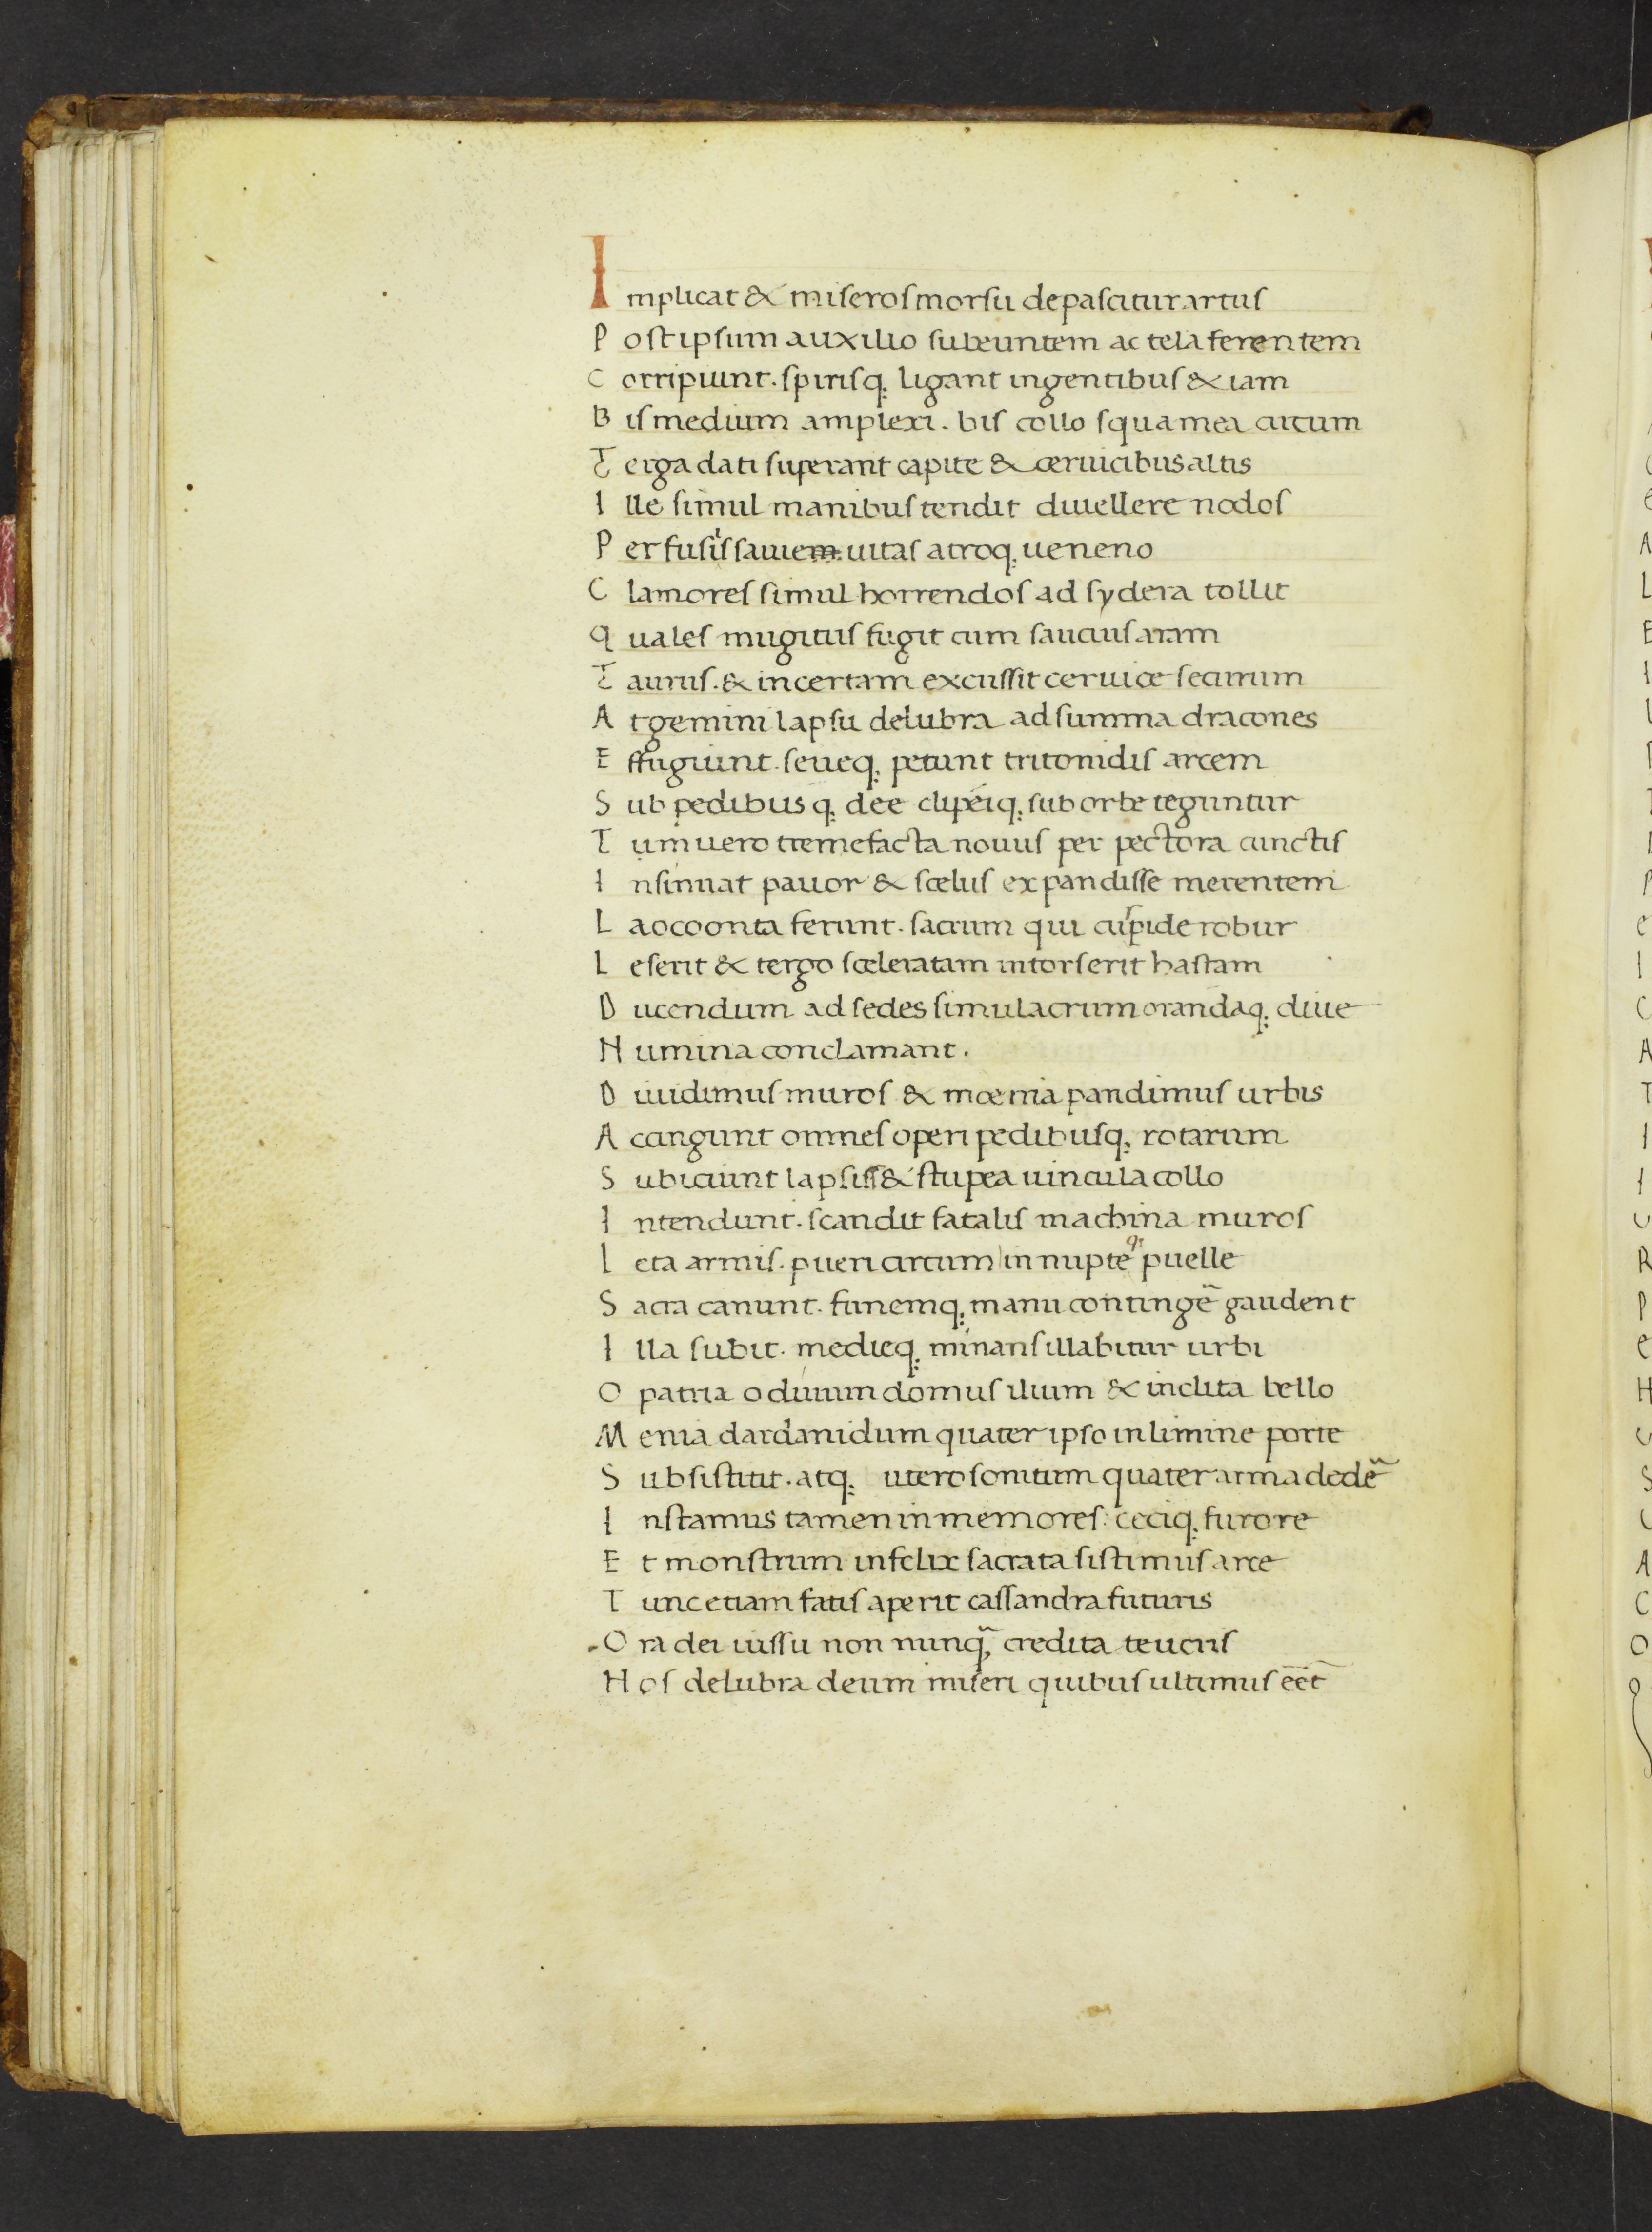 Implicat & miseros morsu depascitur artus
Post ipsum auxilio subeuntem ac tela ferentem
Corripiunt. spirisq; ligant ingentibus & iam
Bis medium amplexi. bis collo squamea circum
Terga dati superant capite & ceruicibus altis
Ille simul manibus tendit diuellere nodos
Perfusus sanie uitas atroq; ueneno
Clamores simul horrendos ad sydera tollit
Quales mugitus fugit cum saucius aram
Taurus. & incertam excussit ceruice securum
At gemini lapsu delubra ad summa dracones
Effugiunt. seueq; petunt tritonidis arcem
Sub pedibusq; dee clipeiq; sub orbe teguntur
Tum uero tremefacta nouus per pectora cunctis
Insinuat pauor & scelus expandisse merentem
Laocoonta ferunt. sacrum qui cuspide robur
Leserit & tergo sceleratam intorserit hastam
Ducendum ad sedes simulacrum orandaq; diue
Numina conclamant.
Diuidimus muros & moenia pandimus urbis
Accingunt omnes operi pedibusq; rotarum
Subiciunt lapsus & stupea uincula collo
Intendunt. scandit fatalis machina muros
Leta armis. pueri circum innupte q; puelle
Sacra canunt. funemq; manu contingē gaudent
Illa subit. medieq; minans illabitur urbi
O patria o diuum domus ilium & inclita bello
Menia dardanidum quater ipso in limine porte
Subsistitit. atq; utero sonitum quater arma dedē
Instamus tamen inmemores: ceciq; furore
Et monstrum infelix sacrata sistimus arce
Tunc etiam fatis aperit cassandra futuris
Ora dei iussu non nunq̃ credita teucris
Nos delubra deum miseri quibus ultimus eēt